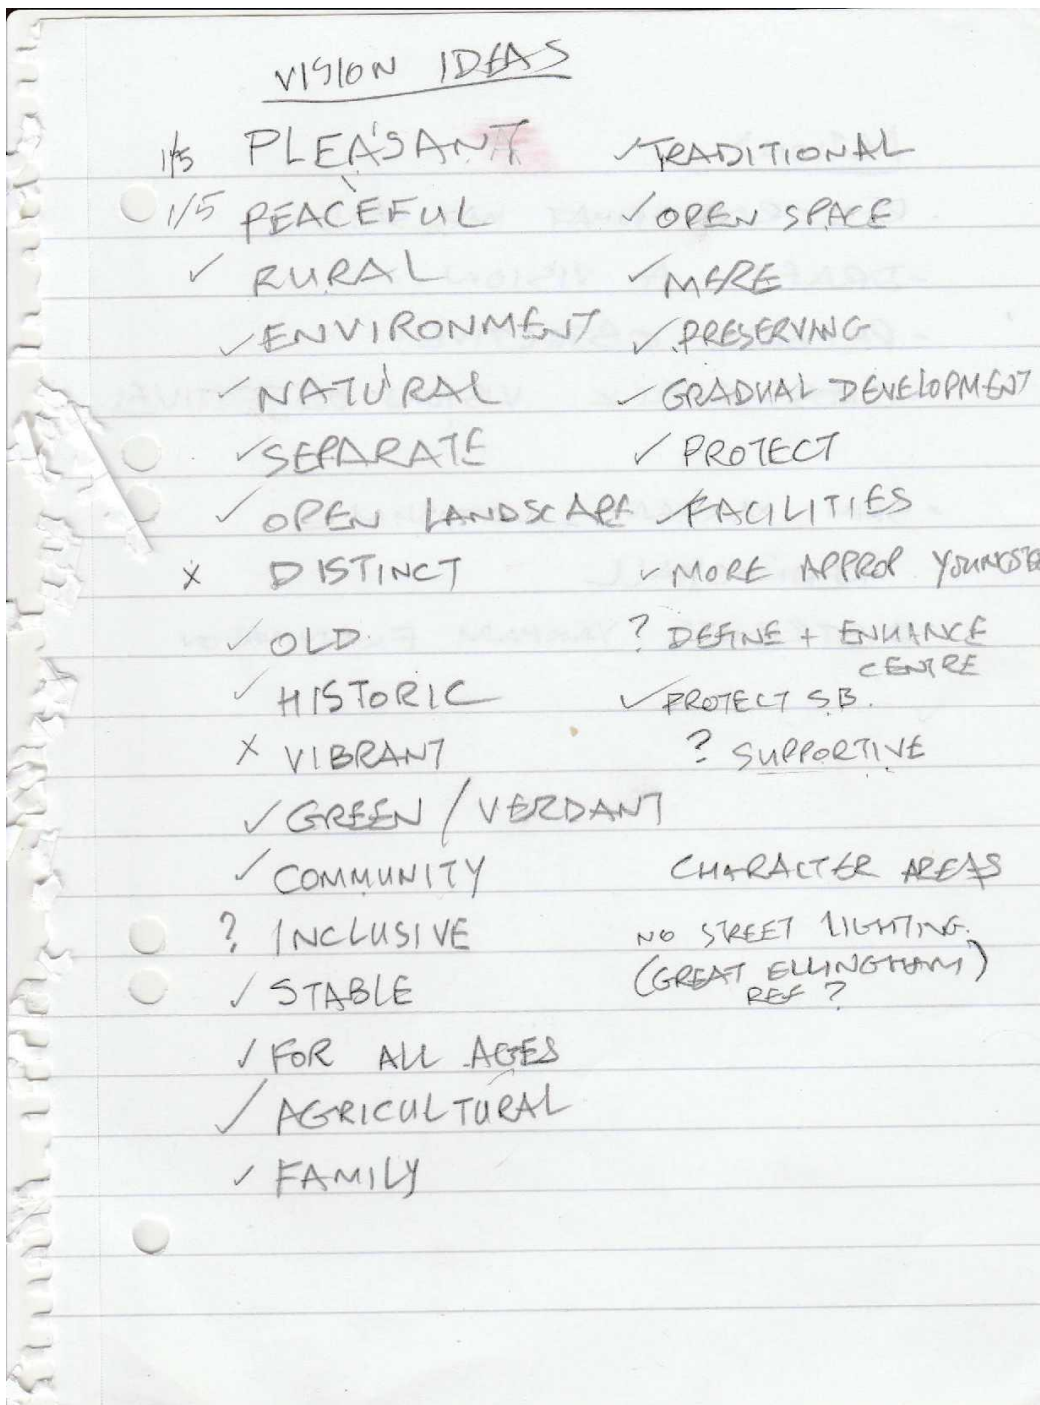 VISION IDEAS
1/5 PLEASANT
1/5 PEACEFUL
✓ RURAL
✓ ENVIRONMENT
✓ NATURAL
✓ SEPARATE
✓ OPEN LANDSCAPE
x DISTINCT
✓ OLD
✓ HISTORIC
x VIBRANT
✓ GREEN / VERDANT
✓ COMMUNITY
? INCLUSIVE
✓ STABLE
✓ FOR ALL AGES
✓ AGRICULTURAL
✓ FAMILY
✓ TRADITIONAL
✓ OPEN SPACE
✓ MERE
✓ PRESERVING
✓ GRADUAL DEVELOPMENT
✓ PROTECT
✓ FACILITIES
✓ MORE APPROP YOUNGSTE
? DEFINE + ENHANCE
CENTRE
✓ PROTECT S.B.
? SUPPORTIVE
CHARACTER AREAS
NO STREET LIGHTING.
(GREAT ELLINGHAM)
REF ?